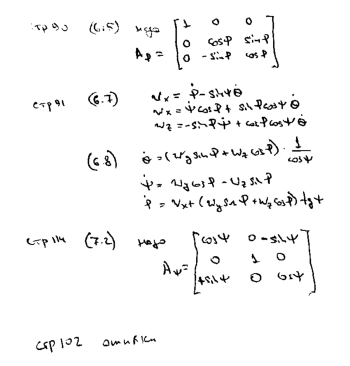 стр 90 (6.5) надо A_φ = [1 0 0; 0 cosφ sinφ; 0 -sinφ cosφ]
стр 91 (6.7) ω_x = φ̇ - sinψ θ̇
ω_x = ψ̇ cosφ + sinφ cosψ θ̇
ω_z = -sinφ ψ̇ + cosφ cosψ θ̇
(6.8) θ̇ = (ω_y sinφ + ω_z cosφ) · 1/cosψ
ψ̇ = ω_y cosφ - ω_z sinφ
φ̇ = ω_x + (ω_y sinφ + ω_z cosφ) tgψ
стр 114 (7.2) надо A_ψ = [cosψ 0 -sinψ; 0 1 0; +sinψ 0 cosψ]
стр 102 ошибки